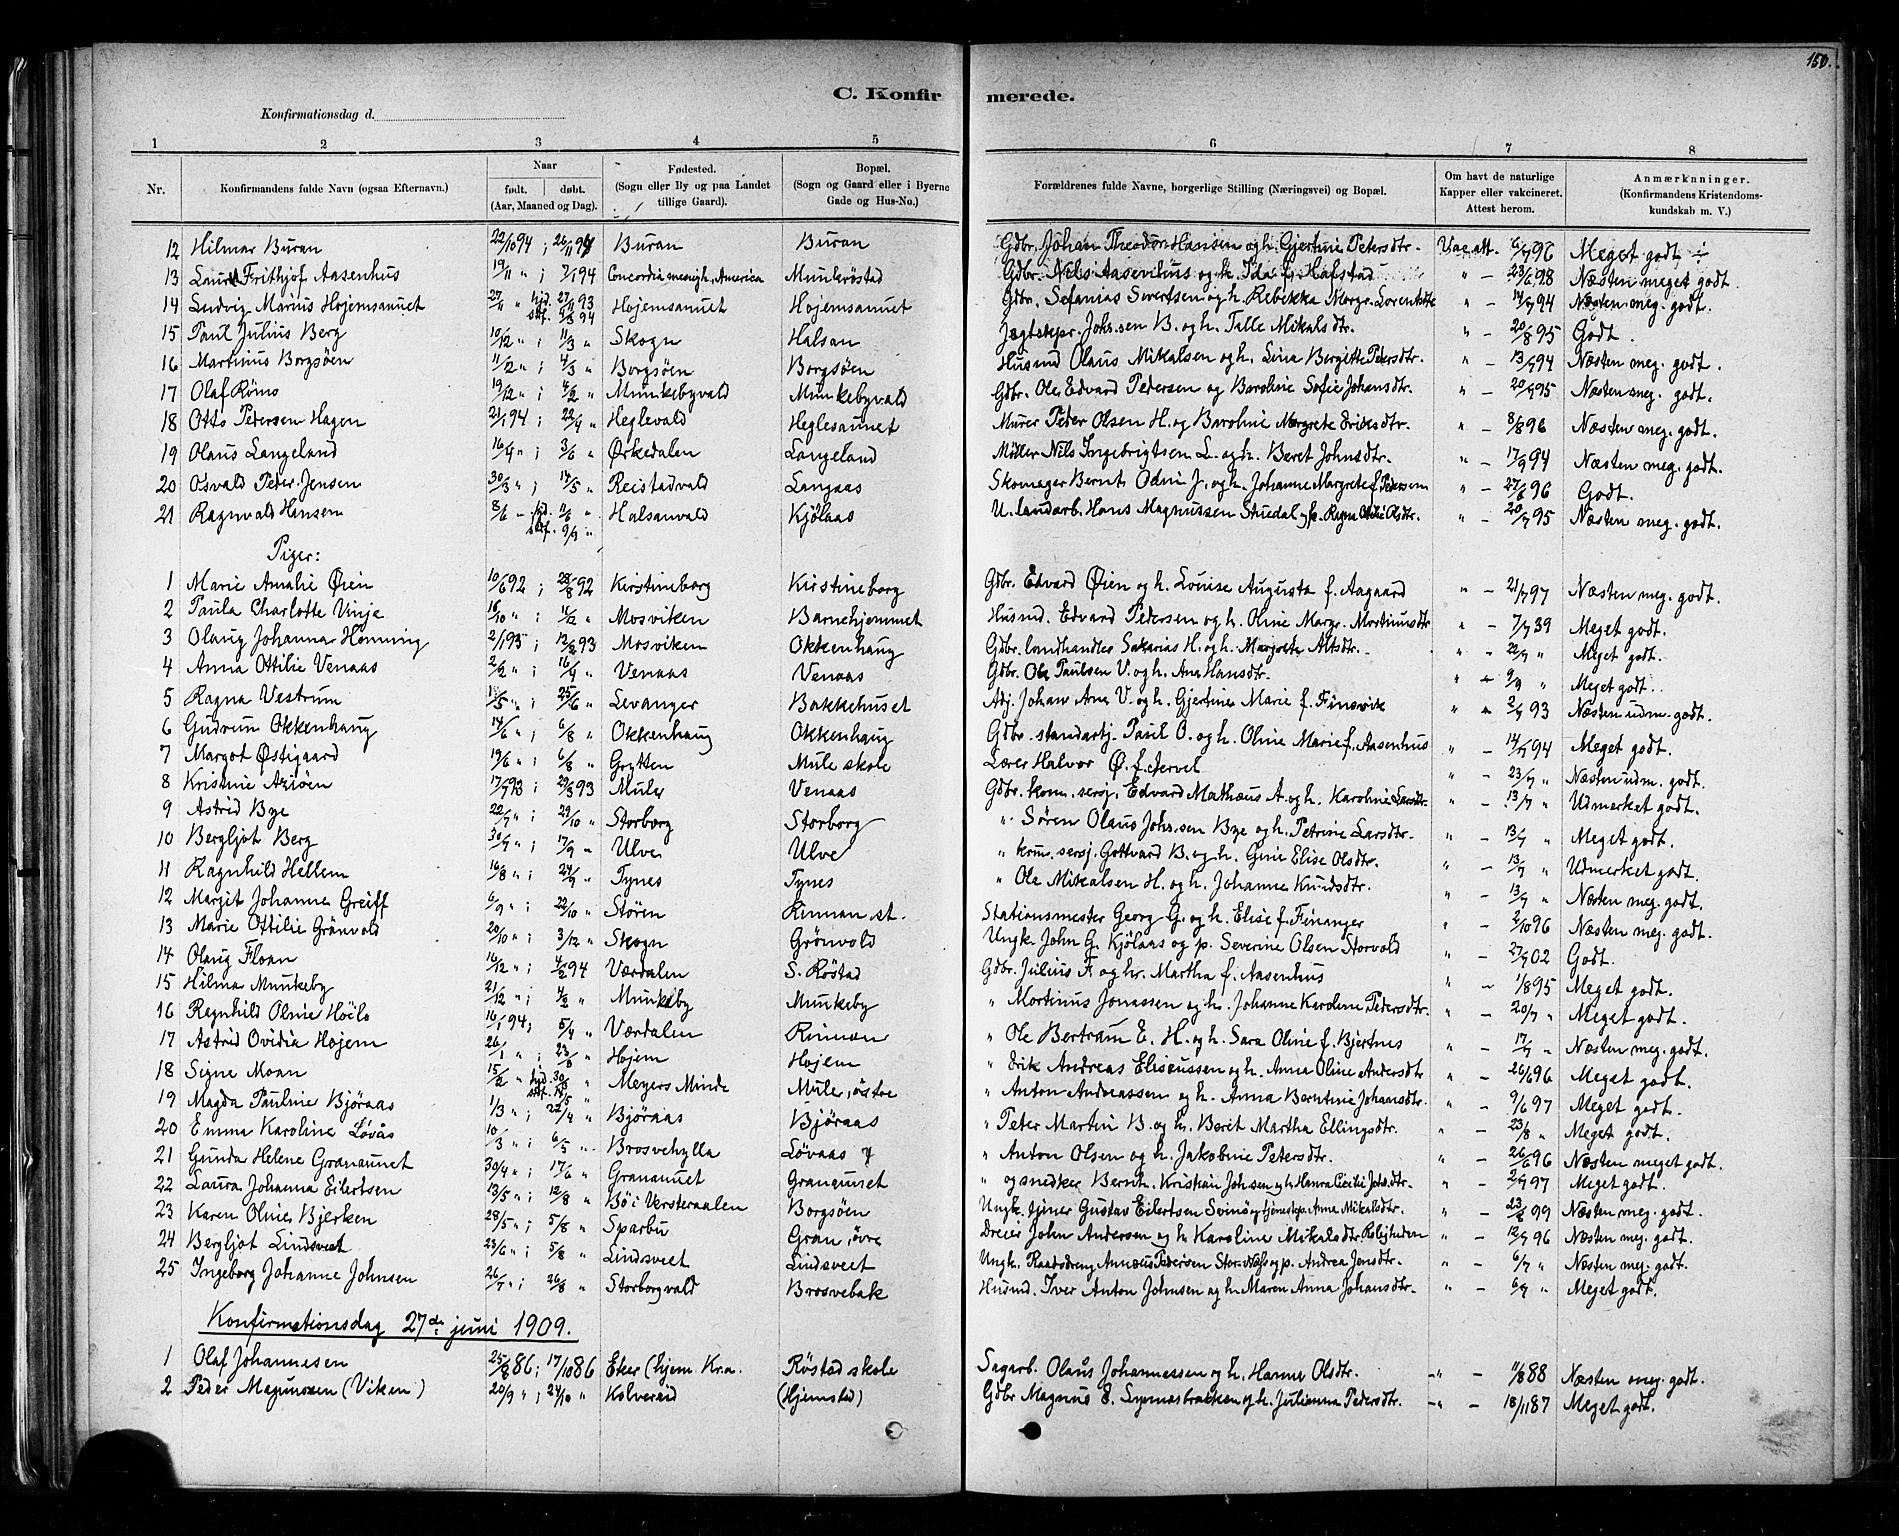 150.
C. Konfirmerede.
Konfirmationsdag d.
1 2 3 4 5 6 7 8
Nr. Konfirmandens fulde Navn (ogsaa Efternavn.) Naar født. døbt. (Aar, Maaned og Dag). Fødested. (Sogn eller By og paa Landet tillige Gaard). Bopæl. (Sogn og Gaard eller i Byerne Gade og Hus-No.) Forældrenes fulde Navne, borgerlige Stilling (Næringsvei) og Bopæl. Om havt de naturlige Kapper eller vakcineret. Attest herom. Anmærknninger. (Konfirmandens Kristendoms-kundskab m. V.)
12 Hilmar Buran 22/10 94 ; 26/11 94 Buran Buran Gdbr. Johan Theodor Hansen og h. Gjertine Petersdtr. Vac. att. 6/7 96 Meget godt
13 Frithjof Aasenhus 19/11 " ; 7/1 94 Concordia menigh., America Munkrøstad Gdbr. Nils Aasenhus og h. Ida f. Hafstad " - 23/6 98 Næsten meget godt.
14 Ludvig Marius Hojemsaunet 27/11 " hjd. 27/11 93 stf. 94 Hojemsaunet Hojemsaunet Gdbr. Sefanias Sivertsen og h. Rebekka Margr. Lorentsdtr " - 14/7 94 Næsten meg. godt.
15 Paul Julius Berg 10/12 " ; 11/3 " Skogn Halsan Jægtskpr. Johs.sen B. og h. Talle Mikalsdtr. " - 20/8 95 Godt.
16 Martinus Borgsöen 11/12 " ; 4/3 " Borgsöen Borgsöen Husmd Olaus Mikalsen og h. Lina Bergitte Pedersdtr. " - 13/7 94 Næsten meg. godt.
17 Olaf Römo 19/12 " ; 4/2 " Munkebyvald Munkebyvald Gdbr. Ole Edvard Pedersen og Baroline Sofie Johansdtr. " - 20/7 95 Næsten meg. godt.
18 Otto Pedersen Hagen 21/1 94 ; 22/4 " Heglevald Heglesaunet Murer Peter Olsen H. og Baroline Margrete Eriksdtr. " - 8/8 96 Næsten meg. godt.
19 Olaus Langeland 16/4 " ; 3/6 " Ørkedalen Langeland Möller Nils Ingebrigtsen L. og h. Beret Johnsdtr. " - 17/9 94 Næsten meg. godt.
20 Osvald Peder Jensen 30/3 " ; 14/5 " Reistadvald Langaas Skomager Bernt Odin J. og h. Johanne Margrete f. Pedersen " - 27/6 96 Godt.
21 Ragnvald Hansen 8/6 - hjd. 11/6 " stf. 9/9 " Halsanvald Kjölaas U. landarb. Hans Magnussen Stuedal og p. Ragna Otilie Olsdtr. " - 20/7 95 Næsten meg. godt.
Piger:
1 Marie Amalie Øien 10/6 92 ; 28/8 92 Kirstineborg Kirstineborg Gdbr. Edvard Øien og h. Louise Augusta f. Aagaard " - 21/7 97 Næsten meg. godt.
2 Paula Charlotte Vinje 16/10 " ; 11/12 " Mosviken Barnehjemmet Husmd. Edvard Pedersen og h. Oline Margr. Martinusdtr " - 7/7 39 Meget godt.
3 Olaug Johanna Henning 2/1 93 ; 12/2 93 Mosviken Okkenhaug Gdbr. landhandler Sakarias H. og h. Margrete Altsdtr. " - 22/7 " Meget godt.
4 Anna Ottilie Venaas 2/2 " ; 16/4 " Venaas Venaas Gdbr. Ole Paulsen V. og h. Ane Hansdtr. " - 9/9 " Meget godt.
5 Ragna Vestrum 11/5 " ; 25/6 " Levanger Bakkehuset Adj. Johan Arne V. og h. Gjertine Marie f. Finsvik " - 2/7 93 Næsten udm. godt.
6 Gudrun Okkenhaug 14/6 " ; 6/8 " Okkenhaug Okkenhaug Gdbr. standartj. Paul O. og h. Oline Marie f. Aasenhus " - 14/7 94 Meget godt.
7 Margot Østigaard 19/6 " ; 6/8 " Grytten Mule skole Lærer Halvor Ø. f. Jervel " - 23/7 " Næsten udm. godt.
8 Kristine Aziöen 17/7 93 ; 29/8 93 Mule Venaas Gdbr. kom. sersj. Edvard Mathæus A. og h. Karoline Larsdtr. " - 13/7 " Udmerket godt.
9 Astrid Bye 22/7 " ; 29/10 " Storborg Storborg " Sören Olaus Johs.sen Bye og h. Petrine Larsdtr. " - 13/7 " Meget godt.
10 Bergljot Berg 30/7 " ; 17/9 " Ulve Ulve " kom. sersj. Gottvard B. og h. Gine Elise Olsdtr. " - 13/7 " Udmerket godt.
11 Ragnhild Hellem 16/8 " ; 24/9 " Tynes Tynes " Ole Mikalsen H. og h. Johanne Knudsdtr. " - 13/7 " Næsten meg. godt.
12 Margit Johanne Greiff 6/9 " ; 22/10 " Stören Rinnan st. Stationsmester Georg G. og h. Elise f. Finanger " - 2/10 96 Næsten meg. godt.
13 Marie Ottilie Grönvold 20/10 " ; 3/12 " Skogn Grönvold Ungk. John G. Kjölaas og p. Severine Olsen Storvald " - 27/7 02 Godt.
14 Olaug Floan 16/12 " ; 4/2 94 Værdalen S. Röstad Gdbr. Julius F. og h. Martha f. Aasenhus " - 1/8 95 Meget godt.
15 Hilma Munkeby 21/12 " ; 4/2 " Munkeby Munkeby " Martinus Jonassen og h. Johanne Karoline Pedersdtr. " - 20/7 " Meget godt.
16 Ragnhild Oline Höilo 16/1 94 ; 5/4 " Værdalen Rinnan " Ole Bertram E. H. og h. Sara Oline f. Bjertnes " - 17/7 " Næsten meg. godt.
17 Astrid Ovidia Hojem 26/1 " ; 23/3 " Hojem Hojem " Erik Andreas Eliseussen og h. Anna Oline Andersdtr " - 26/6 96 Meget godt.
18 Signe Moan 15/2 " hjd. 30/3 " Meyers Minde Mule, östre " Anton Andreassen og h. Anna Berntine Johansdtr. " - 9/6 97 Meget godt.
19 Magda Pauline Björaas 1/3 " ; 22/4 " Björaas Björaas " Peter Martin B. og h. Berit Martha Ellingsdtr. " - 23/8 " Meget godt.
20 Emma Karoline Lövås 10/3 " ; 6/5 " Brosvehylla Lövaas " Anton Olsen og h. Jakobine Petersdtr. " - 26/6 96 Næsten meget godt.
21 Gunda Helene Granaunet 30/4 " ; 17/6 " Granaunet Granaunet " og snedker Bernh. Kristian Johsen og h. Hanna Cecilie Johs.dtr. " - 2/7 97 Meget godt.
22 Laura Johanna Eilertsen 13/5 " ; 12/8 " Bö i Versteraalen Borgsöen Ungk. Gustav Eilertsen Svinö og Anna Mikalsdtr. " - 23/8 99 Næsten meg. godt.
23 Karen Oline Bjerken 28/5 " ; 5/8 " Sparbu Gran, övre Dreier John Andersen og h. Karoline Mikalsdtr. Roligheden " - 12/7 96 Næsten meg. godt.
24 Bergljot Lindsveet 23/6 " ; 5/8 " Lindsveet Lindsveet Ungk. Annæus Pedersen og p. Andrea Jensdtr. " - 6/7 " Næsten meg. godt.
25 Ingeborg Johanne Johnsen 26/7 " ; 26/8 " Storborgvald Brosvebak Husmd. Iver Anton Johnsen og h. Maren Anna Johansdtr. " - 6/7 " Meget godt.
Konfirmationsdag 27de juni 1909.
1 Olaf Johannesen 25/8 86 ; 17/10 86 Eker (hjem. Kra. Röstad skole Sagarb. Olaus Johannessen og h. Hanna Olsdtr. " - 11/8 88 Næsten meg. godt.
2 Peder Magnussen (Viken) 20/9 " ; 24/10 " Kolvereid (Hjemstad) Gdbr Magnus E. og h. Julianna Pedersdtr. " - 18/11 87 Meget godt.